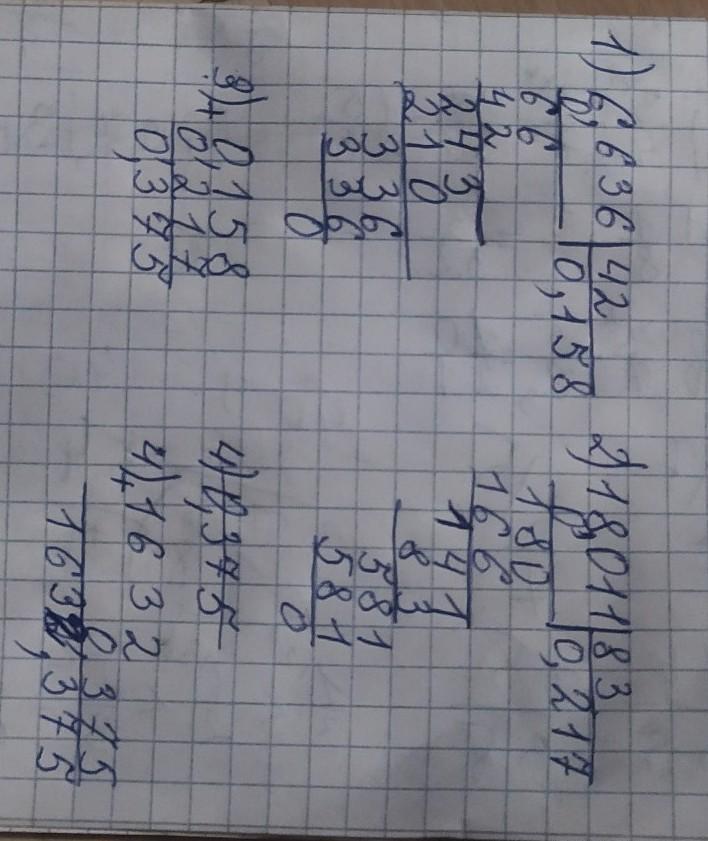 1) 6,636 | 42
0,158
66
42
243
210
336
336
0
2) 18,011 | 83
0,217
180
166
141
83
581
581
0
3) + 0,158
0,217
0,375
4) 0,375
4) + 1632
0,375
1632,375